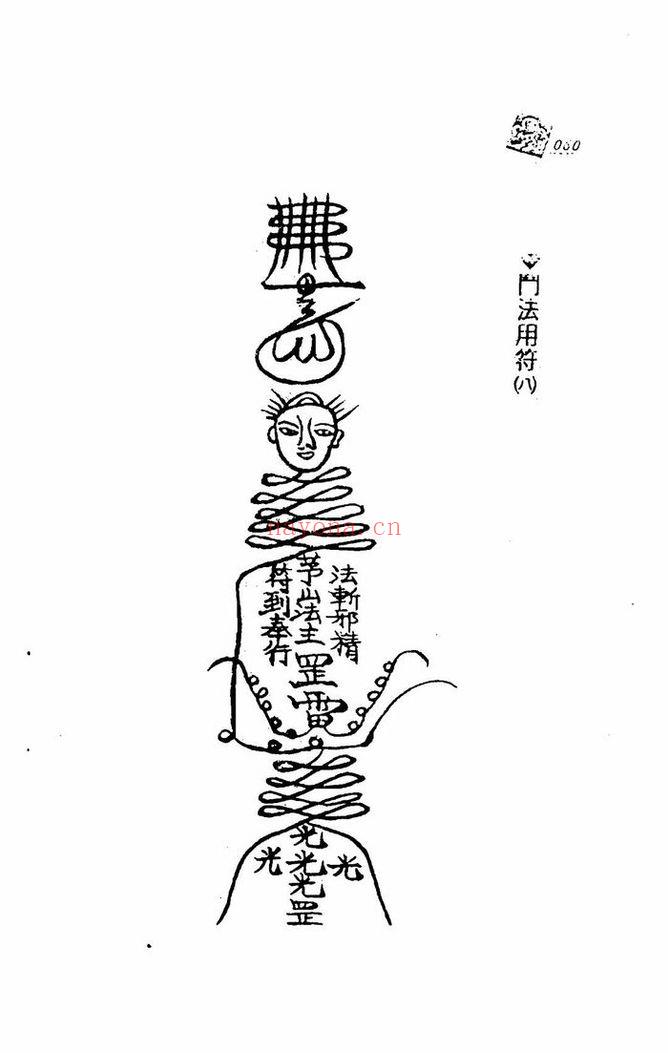 060
鬥法用符(八)
法斬邪精
茅山法主罡雷
符到奉行
nayona.cn
光
光光光
光
罡